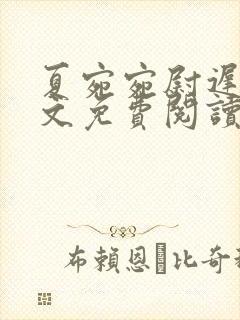 夏宛宛尉遲
文免費閱讀
布賴恩 比奇